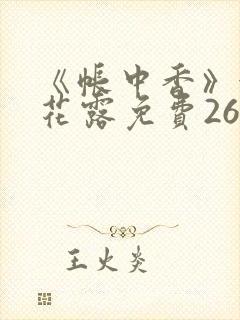 《帐中香》
花露免費26
王火炎